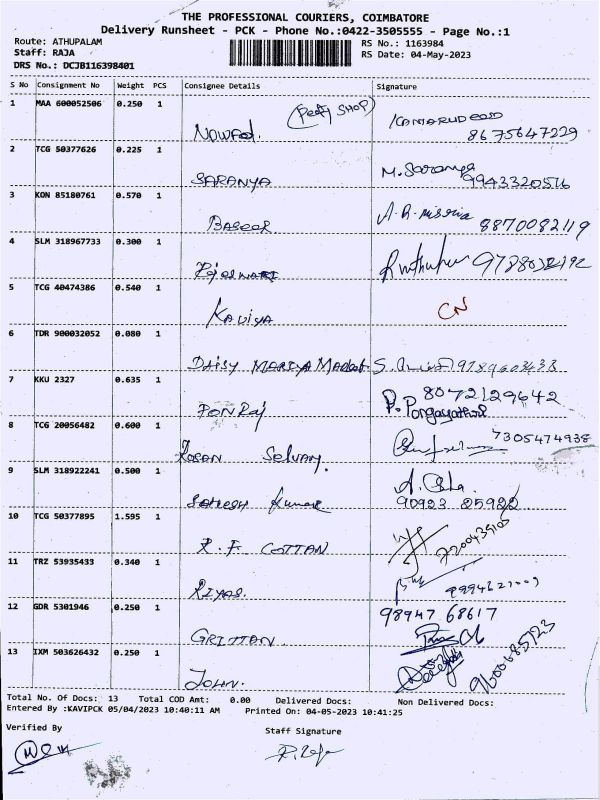 THE PROFESSIONAL COURIERS, COIMBATORE
Delivery Runsheet - PCK - Phone No.:0422-3505555 - Page No.:1
Route: ATHUPALAM
RS No.: 1163984
Staff: RAJA
RS Date: 04-May-2023
DRS No.: DCJB116398401
S No Consignment No Weight PCS Consignee Details Signature
1 MAA 600052506 0.250 1
(Petty SHOP) KAMARUDEOSD
NOWFAL. 8675647229
2 TCG 50377626 0.225 1
M. Saranya
SARANYA 9943320516
3 KON 85180761 0.570 1
BASEER A.R. 8870082119
4 SLM 318967733 0.300 1
RAJESWARI
5 TCG 40474386 0.540 1
KAVIYA CN
6 TDR 900032052 0.080 1
DAISY MARIYA S.
7 KKU 2327 0.635 1
PONRaj P. 8072129642
8 TCG 20056482 0.600 1
7305474938
Selvam.
9 SLM 318922241 0.500 1
A.
Kumar 90923 25922
10 TCG 50377895 1.595 1
R.F COTTAN 7200439103
11 TRZ 53935433 0.340 1
RIYAS.
12 GDR 5301946 0.250 1
98947 68617
GRITTAN
13 IXM 503626432 0.250 1
JOHN. 9600685723
Total No. Of Docs: 13 Total COD Amt: 0.00 Delivered Docs: Non Delivered Docs:
Entered By :KAVIPCK 05/04/2023 10:40:11 AM Printed On: 04-05-2023 10:41:25
Verified By
Staff Signature
R. Raja